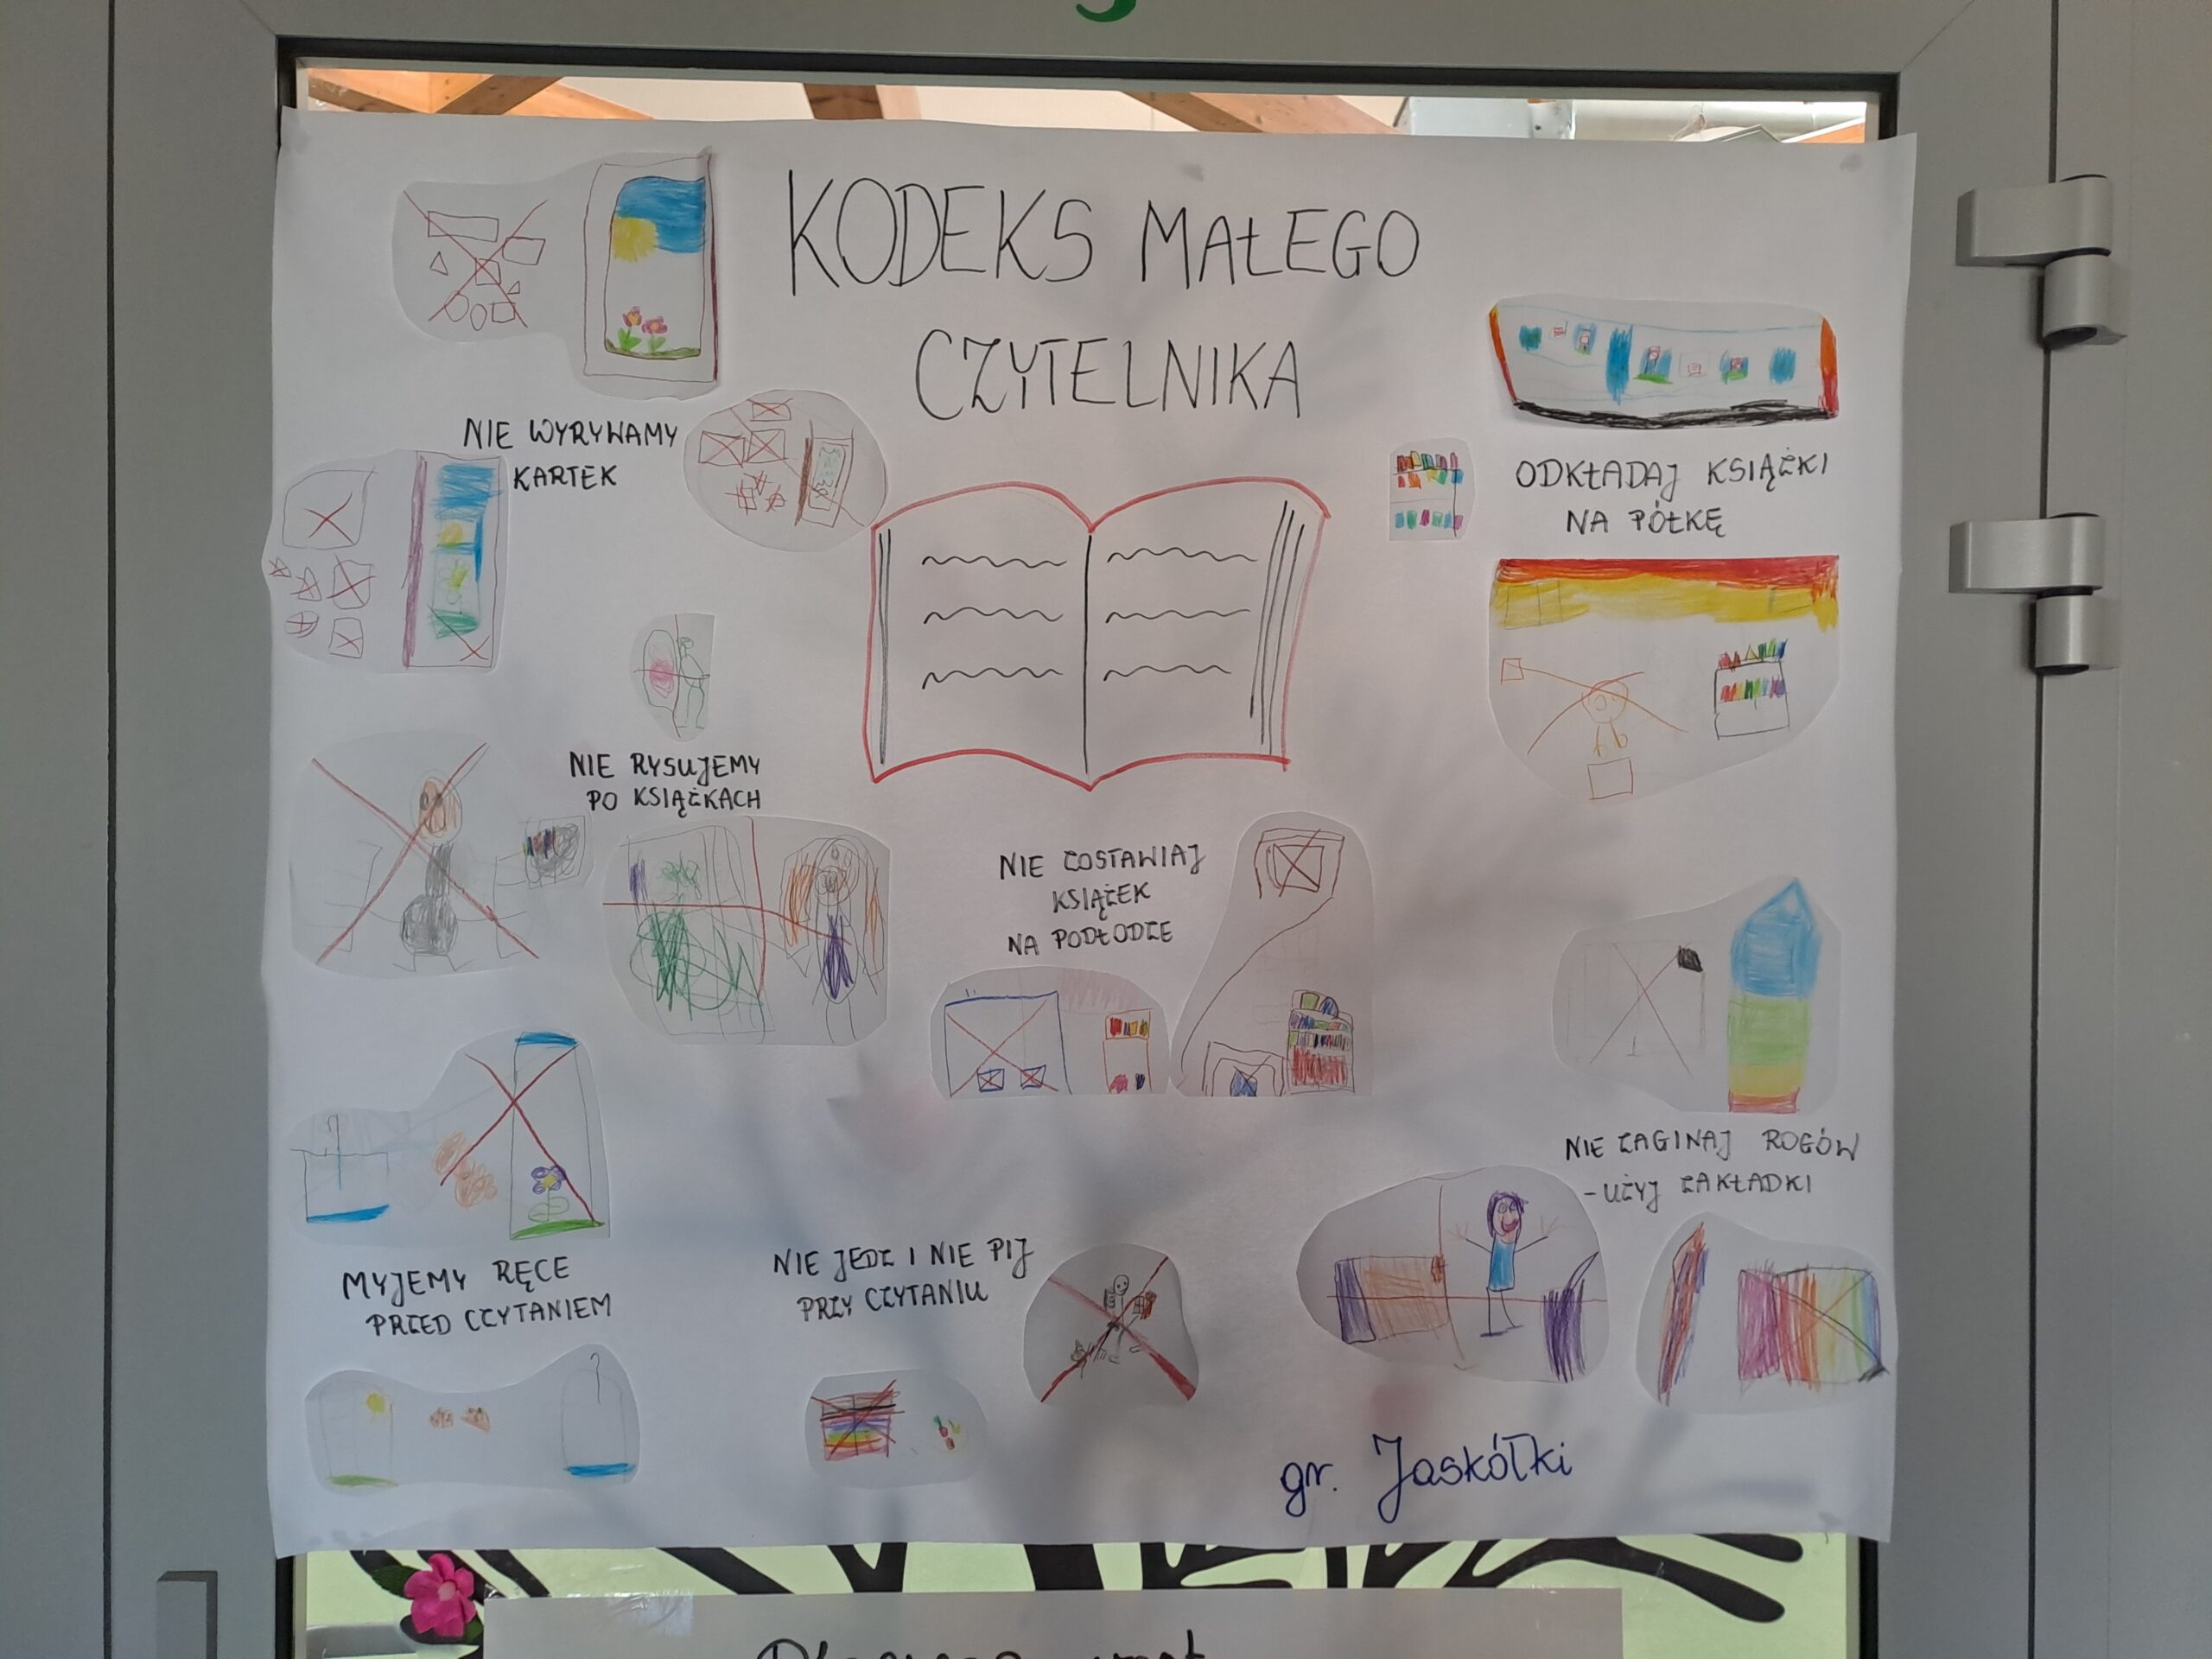 KODEKS MAŁEGO
CZYTELNIKA
NIE WYRYWAMY
KARTEK
ODKŁADAJ KSIĄŻKI
NA PÓŁKĘ
NIE RYSUJEMY
PO KSIĄŻKACH
NIE ZOSTAWIAJ
KSIĄŻEK
NA PODŁODZE
NIE ZAGINAJ ROGÓW
- UŻYJ ZAKŁADKI
MYJEMY RĘCE
PRZED CZYTANIEM
NIE JEDZ I NIE PIJ
PRZY CZYTANIU
gr. Jaskółki